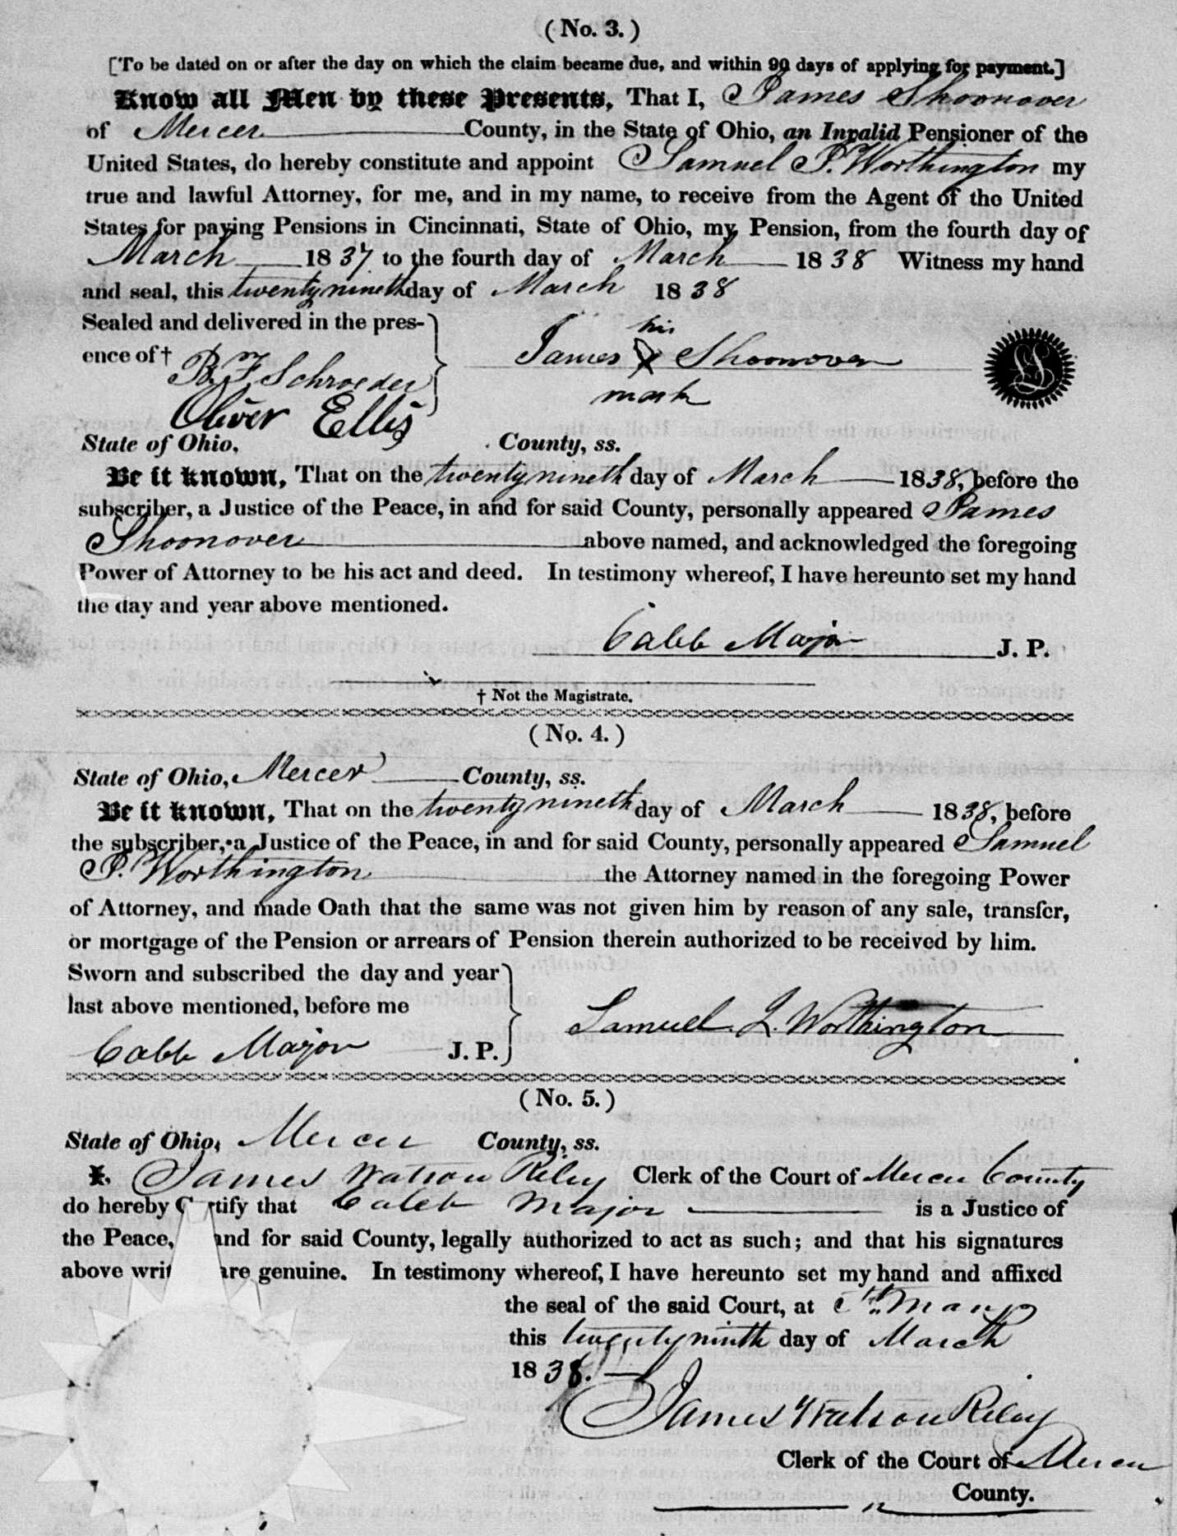 ( No. 3. )
[To be dated on or after the day on which the claim became due, and within 90 days of applying for payment.]
Know all Men by these Presents, That I, James Shoonover
of Mercer County, in the State of Ohio, an Invalid Pensioner of the
United States, do hereby constitute and appoint Samuel P. Worthington my
true and lawful Attorney, for me, and in my name, to receive from the Agent of the United
States for paying Pensions in Cincinnati, State of Ohio, my Pension, from the fourth day of
March 1837 to the fourth day of March 1838 Witness my hand
and seal, this twenty nineth day of March 1838
Sealed and delivered in the pres-
ence of †
his
James X Shoonover
mark
B. F. Schroeder
Oliver Ellis
State of Ohio, County, ss.
Be it known, That on the twenty nineth day of March 1838, before the
subscriber, a Justice of the Peace, in and for said County, personally appeared James
Shoonover above named, and acknowledged the foregoing
Power of Attorney to be his act and deed. In testimony whereof, I have hereunto set my hand
the day and year above mentioned.
Caleb Major J. P.
† Not the Magistrate.
( No. 4. )
State of Ohio, Mercer County, ss.
Be it known, That on the twenty nineth day of March 1838, before
the subscriber, a Justice of the Peace, in and for said County, personally appeared Samuel
P. Worthington the Attorney named in the foregoing Power
of Attorney, and made Oath that the same was not given him by reason of any sale, transfer,
or mortgage of the Pension or arrears of Pension therein authorized to be received by him.
Sworn and subscribed the day and year
last above mentioned, before me
Caleb Major J. P.
Samuel L. Worthington
( No. 5. )
State of Ohio, Mercer County, ss.
I, James Watson Riley Clerk of the Court of Mercer County
do hereby C tify that Caleb Major is a Justice of
the Peace, and for said County, legally authorized to act as such; and that his signatures
above writ are genuine. In testimony whereof, I have hereunto set my hand and affixed
the seal of the said Court, at St. Marys
this twenty ninth day of March
1838.
James Watson Riley
Clerk of the Court of Mercer
County.